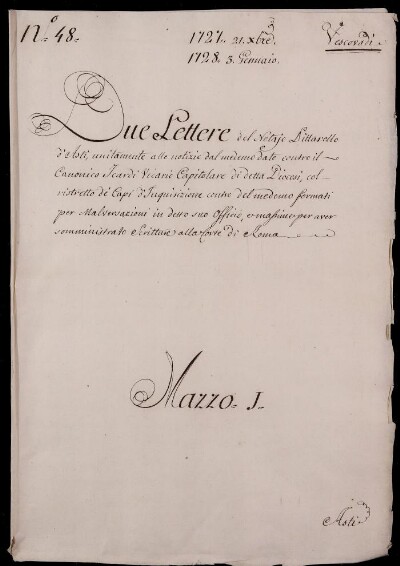 N.º 48.
1727. 21. Xbre.
Vescovadi
1728. 3. Gennaio.
Due Lettere del Notajo Pittarello
d'Asti, unitamente alle notizie dal medemo date contro il
Canonico Icardi Vicario Capitolare di detta Diocesi, col
ristretto de' Capi d'Inquisizione contro del medemo formati
per Malversazioni in detto suo Officio, e massime per aver
somministrate Scritture alla Corte di Roma
Mazzo. I.
Asti